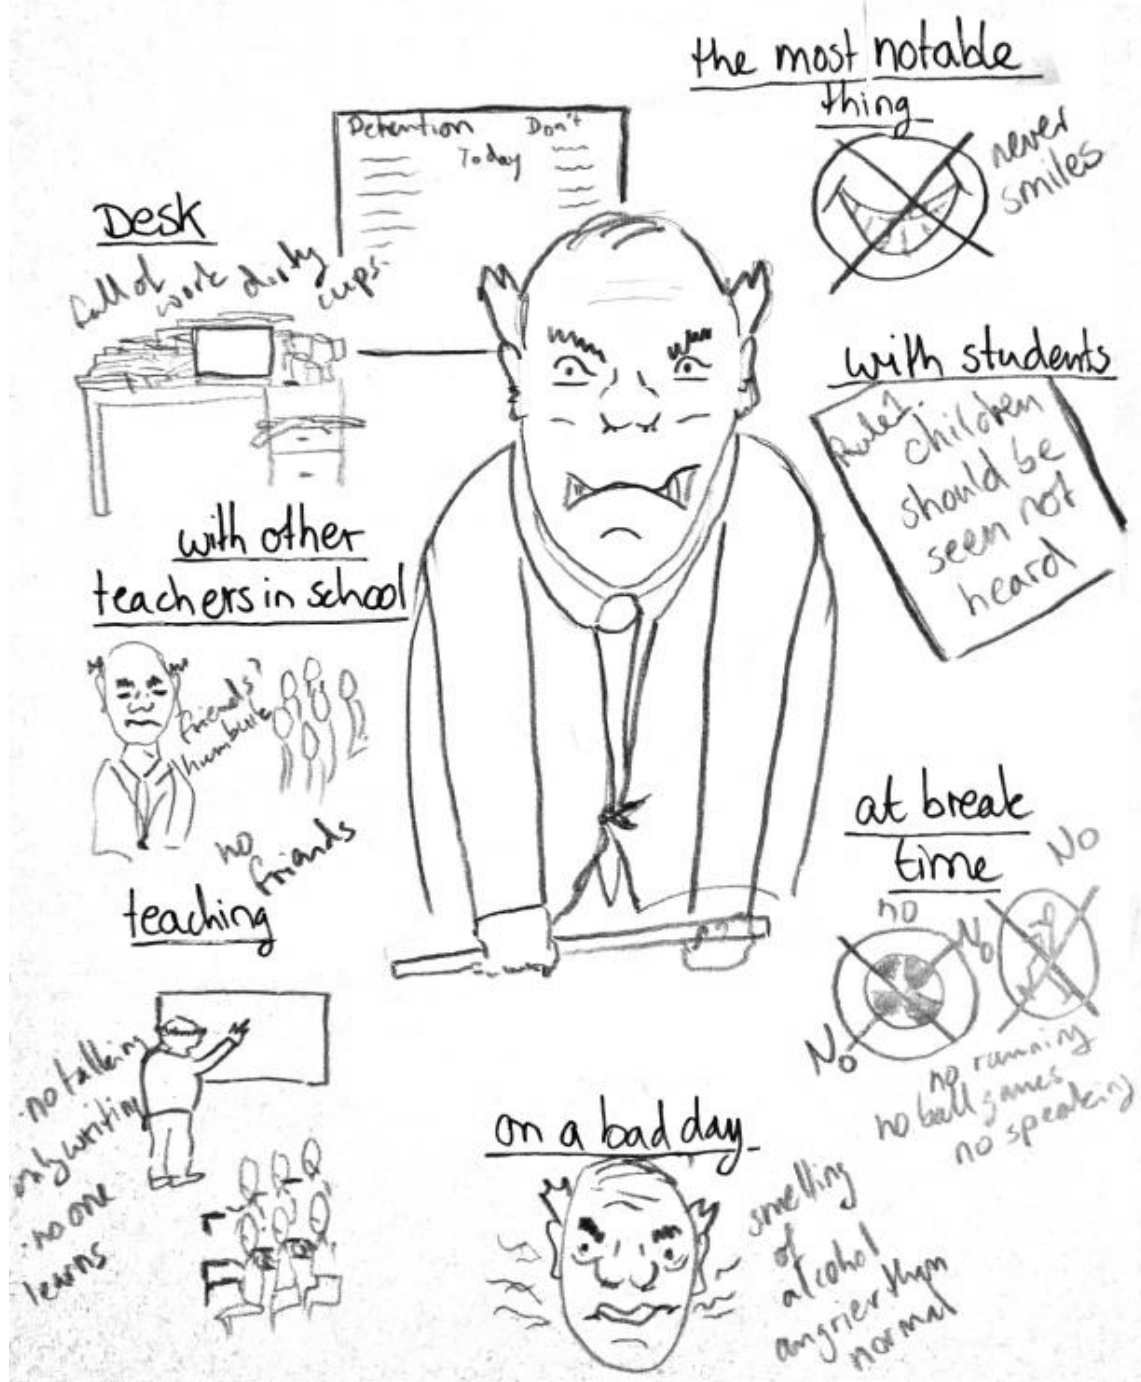 the most notable
thing
never
smiles
Detention Don't
Today
Desk
full of work dirty cups.
with students
Rule 1.
children
should be
seen not
heard
with other
teachers in school
friends?
no
friends
at break
time
No
no
No
No
no running
no ball games
no speaking
teaching
no talking
only writing
no one
learns
on a bad day
smelling
of
alcohol
angrier than
normal